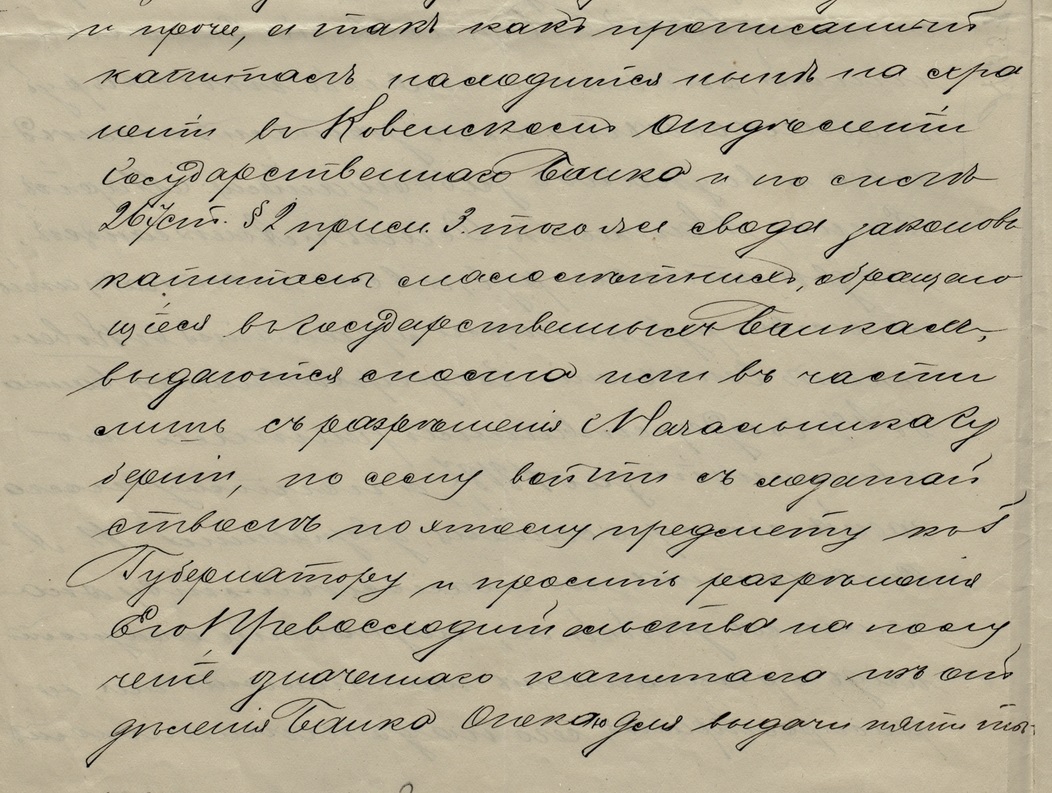 и проч, а такъ какъ прописанный
капиталъ находится нынѣ на хра
неніи въ Ковенскомъ Отдѣленіи
Государственнаго Банка и по силѣ
267 ст. § 2 прим. 3. того же свода законовъ
капиталы малолѣтнихъ, обращаю
щіеся въ Государственныхъ Банкахъ,
выдаются сполна или въ части
лишь съ разрѣшенія Начальника Гу
берніи, по сему войти съ ходатай
ствомъ по этому предмету къ Г.
Губернатору и просить разрѣшенія
Его Превосходительства на полу
ченіе означеннаго капитала изъ от
дѣленія Банка Опекою для выдачи пяти ты-